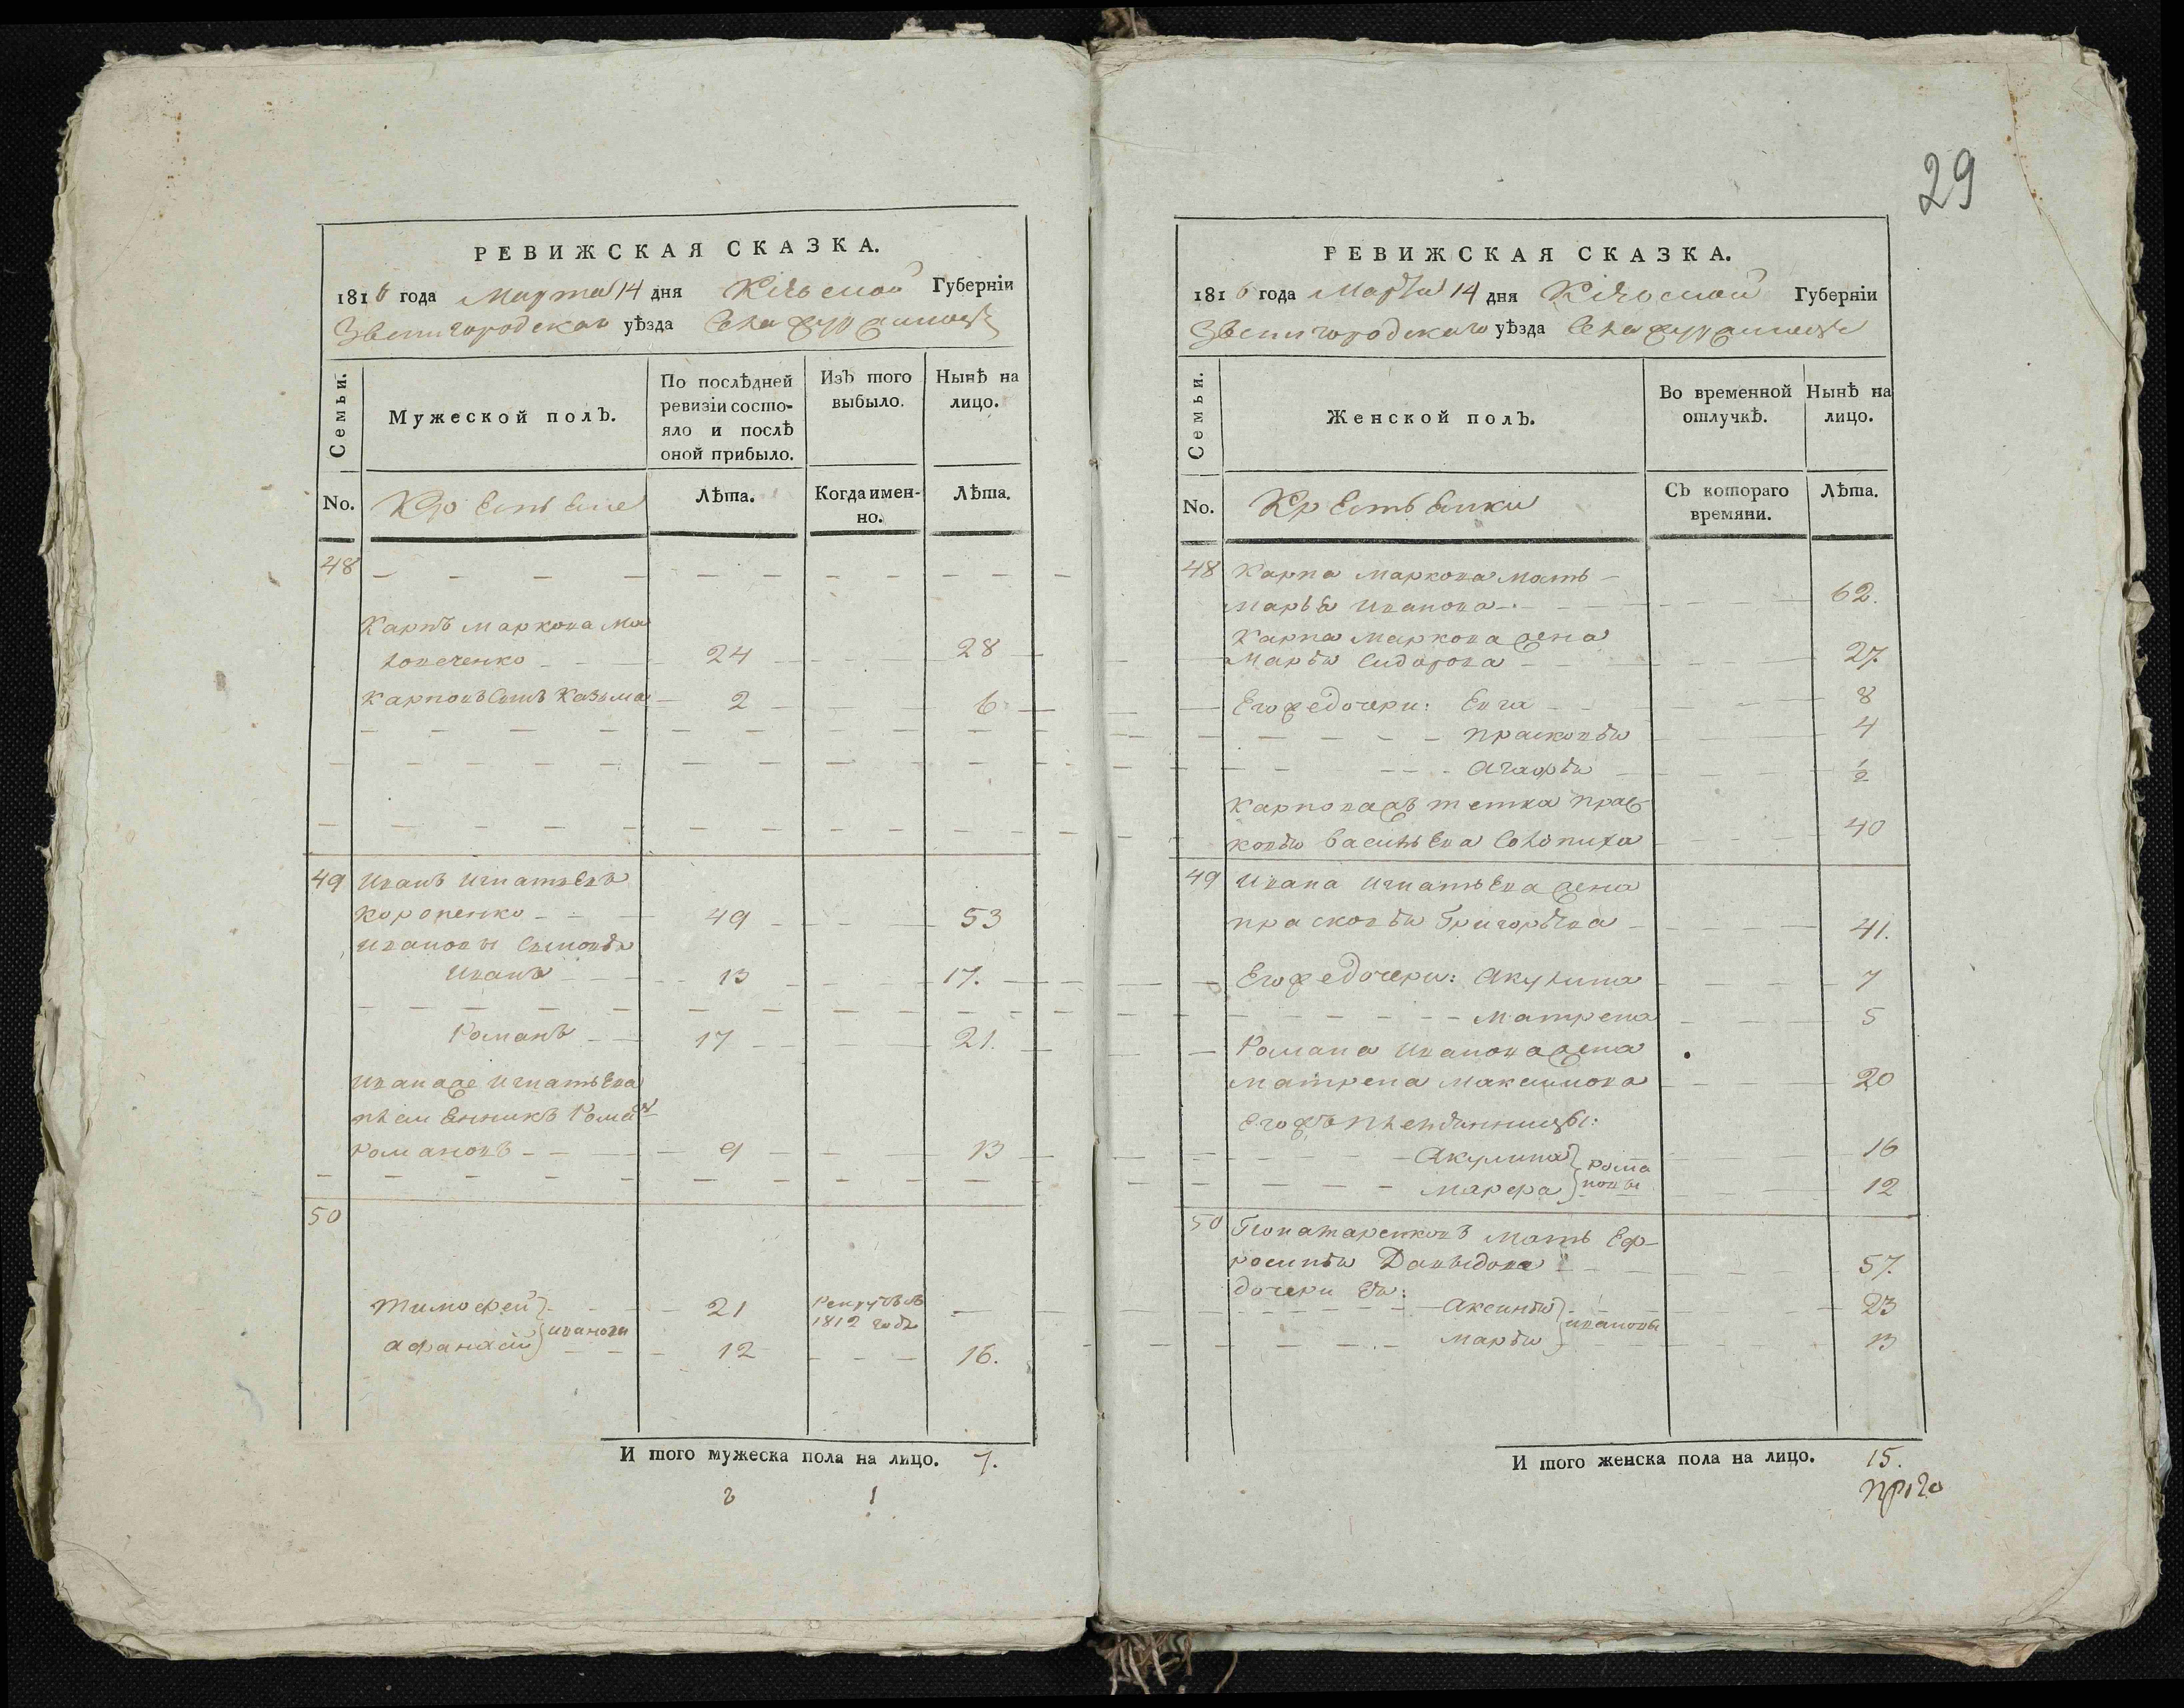 РЕВИЖСКАЯ СКАЗКА.
1816 года Марта 14 дня Кіевской Губерніи
Звенигородскаго уѣзда Села
Семьи.
Мужеской полъ.
По послѣдней ревизіи состояло и послѣ оной прибыло.
Изъ того выбыло.
Нынѣ на лицо.
No.
Крестьяне
Лѣта.
Когда именно.
Лѣта.
48
Карпъ Маркова
24 28
Карповъ Сынъ Казьма 2 6
49 Иванъ Игнатьевъ
49 53
Ивановы Сыновья
Иванъ 13 17.
Романъ 17 21.
Ивана же Игнатьева
племенникъ Романъ
Романовъ 9 13
50
Тимофей 21 Рекрутъ въ
1812 годе
Ивановы
Афанасій 12 16.
И того мужеска пола на лицо. 7.
1
29
РЕВИЖСКАЯ СКАЗКА.
1816 года Марта 14 дня Кіевской Губерніи
Звенигородскаго уѣзда Села
Семьи.
Женской полъ.
Во временной отлучкѣ.
Нынѣ на лицо.
No.
Крестьянки
Съ котораго времяни.
Лѣта.
48 Карпа Маркова Мать
Марья Иванова 62.
Карпа Маркова жена
Марья Сидорова 27.
Его же дочери: Евга 8
Прасковья 4
Агафья 1/2
Карпова жъ тетка Прас
ковья Васильева 40
49 Ивана Игнатьева жена
Прасковья Григорьева 41.
Его же дочери: Акулина 7
Матрена 5
Романа Иванова жена
Матрена Максимова 20
Его жъ племянницы:
Акулина 16
Рома
новы
Марфа 12
50 Мать Еф
росинья Давыдова 57.
дочери Ея:
Аксинья 23
Ивановы
Марья 13
И того женска пола на лицо. 15.